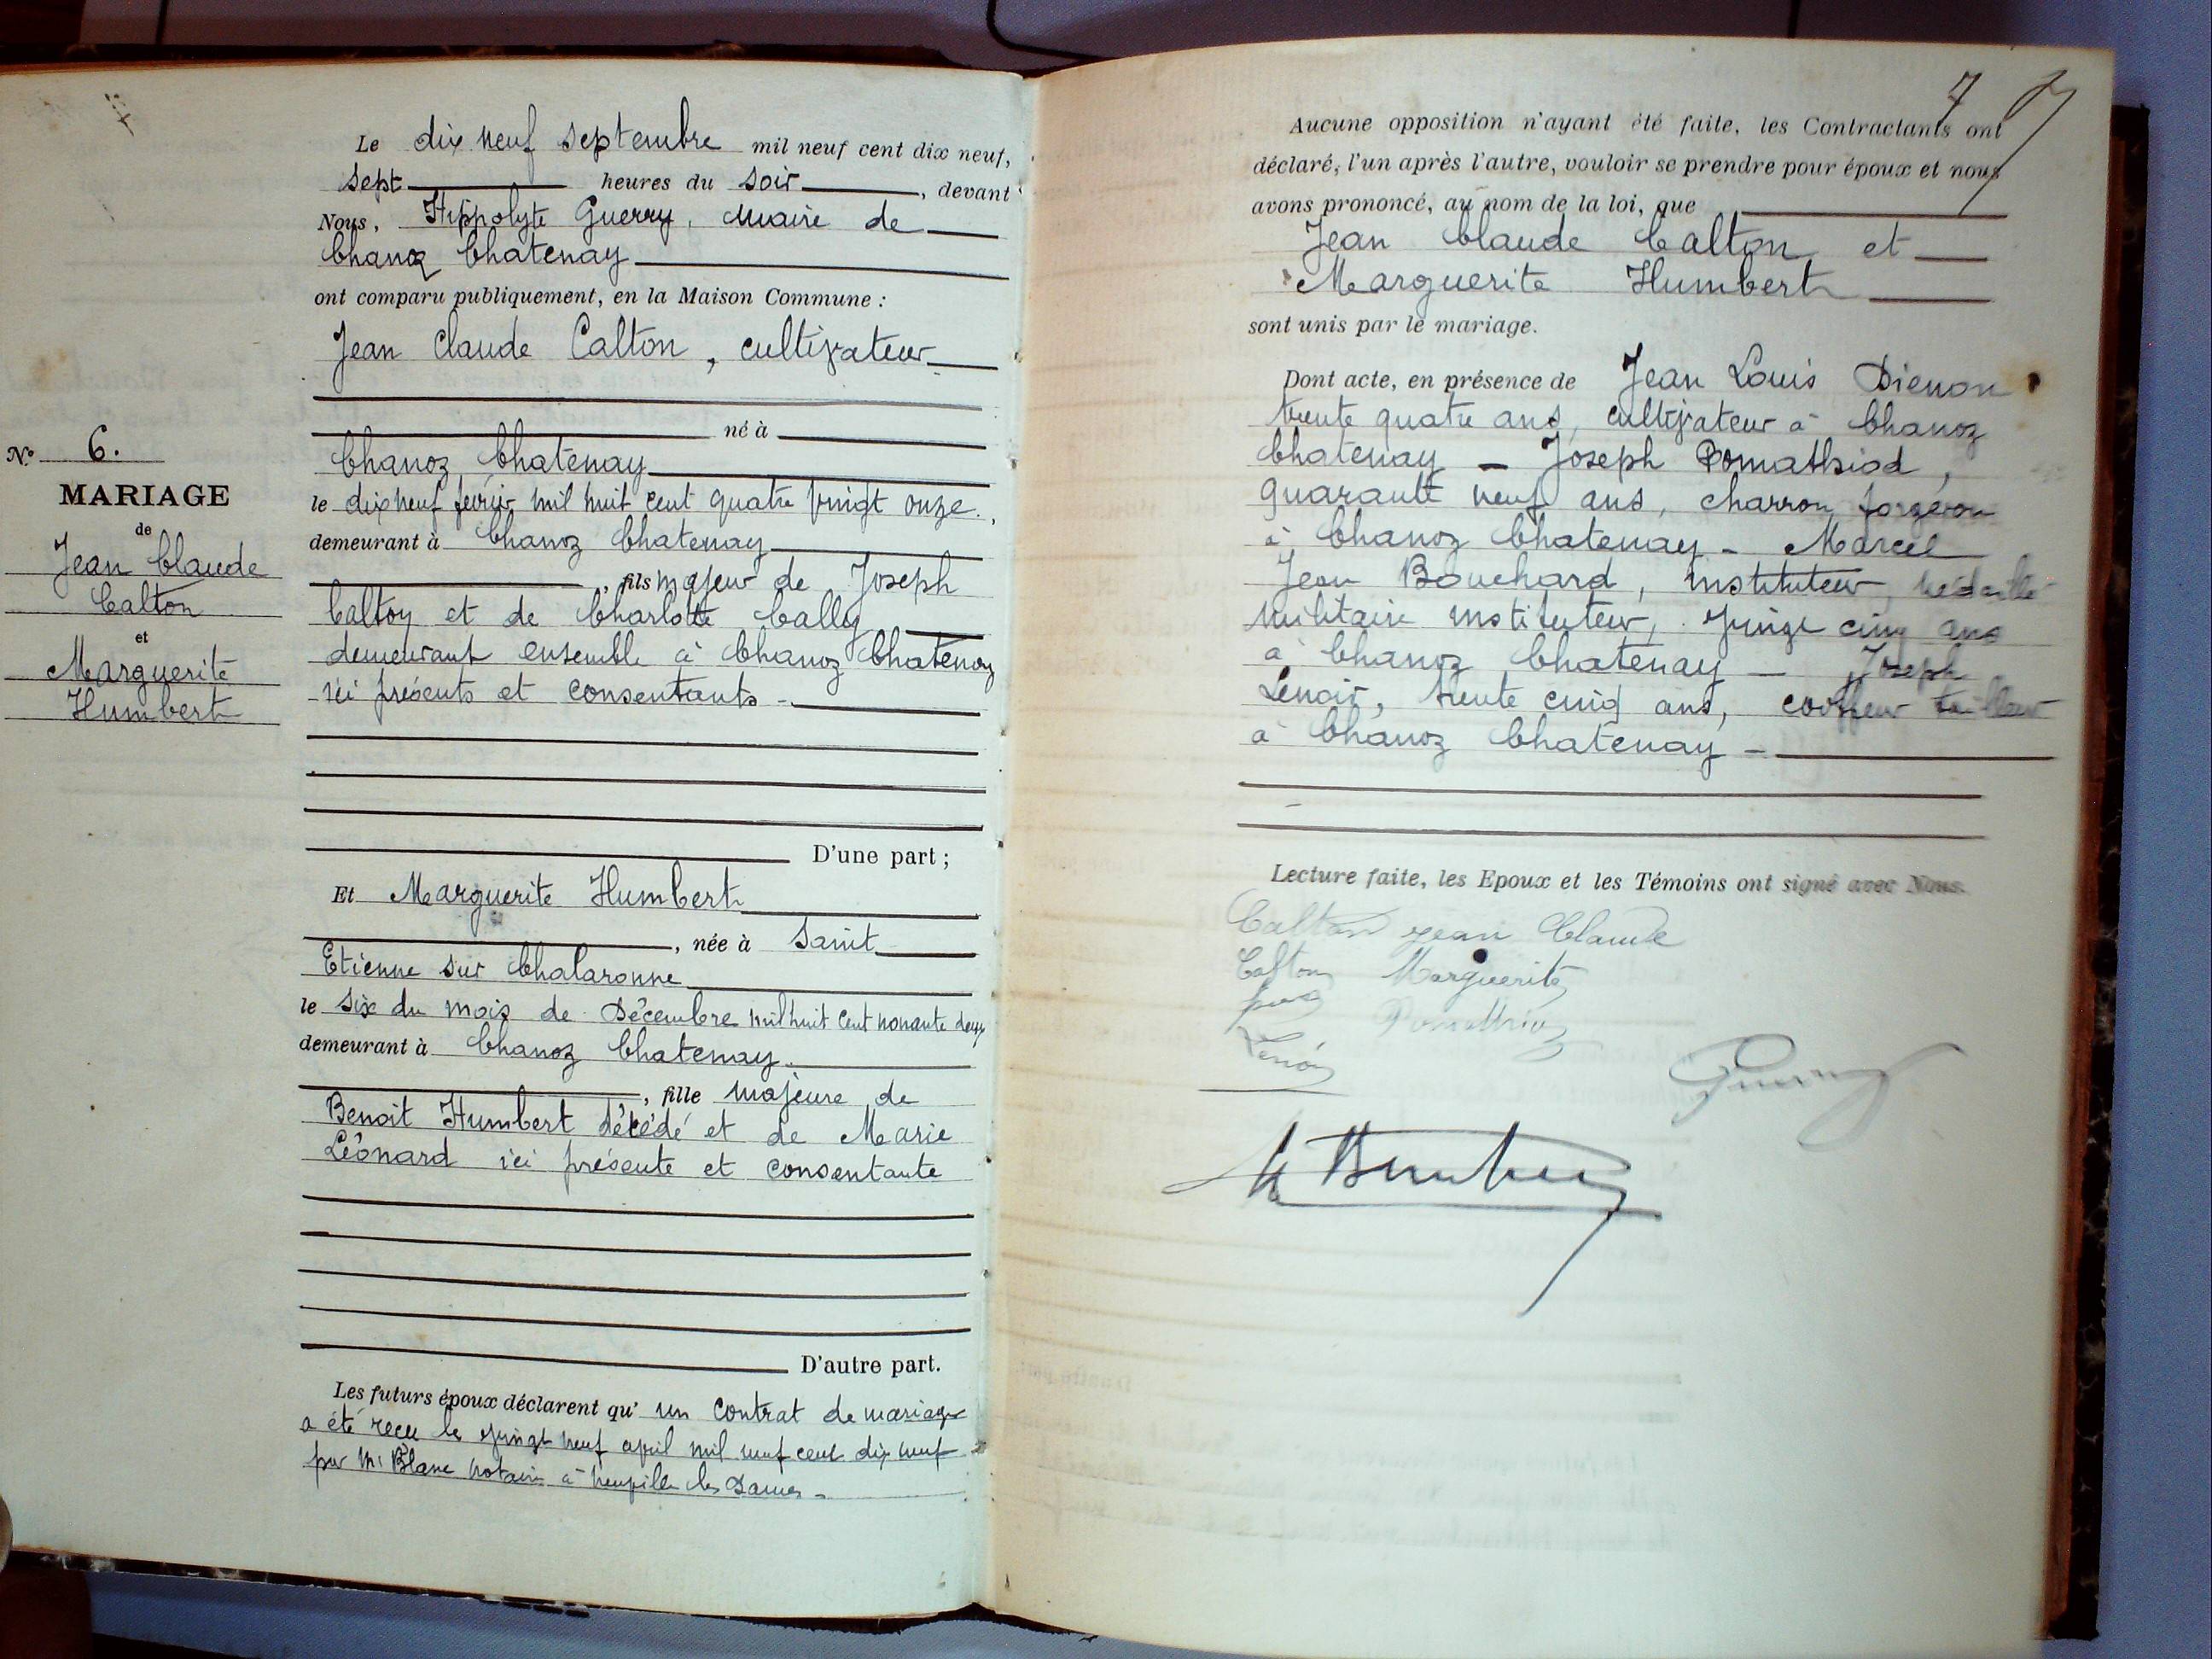 Le dix neuf septembre mil neuf cent dix neuf,
sept heures du soir, devant
Nous, Hippolyte Guerry, Maire de
Chanoz Chatenay
ont comparu publiquement, en la Maison Commune :
Jean Claude Calton, cultivateur
né à
Chanoz Chatenay
le dix neuf février mil huit cent quatre vingt onze.,
demeurant à Chanoz Chatenay
, fils majeur de Joseph
Calton et de Charlotte Cally
demeurant ensemble à Chanoz Chatenay
ici présents et consentants -
D'une part ;
N° 6.
MARIAGE
de
Jean Claude
Calton
et
Marguerite
Humbert
Et Marguerite Humbert
, née à Saint
Etienne sur Chalaronne
le six du mois de Décembre mil huit cent nonante deux
demeurant à Chanoz Chatenay
, fille majeure de
Benoit Humbert décédé et de Marie
Léonard ici présente et consentante
D'autre part.
Les futurs époux déclarent qu' un contrat de mariage
a été reçu le vingt neuf avril mil neuf cent dix neuf
par Me Blanc notaire à Neuville les Dames -
7
Aucune opposition n'ayant été faite, les Contractants ont
déclaré, l'un après l'autre, vouloir se prendre pour époux et nous
avons prononcé, au nom de la loi, que
Jean Claude Calton et
Marguerite Humbert
sont unis par le mariage.
Dont acte, en présence de Jean Louis
trente quatre ans, cultivateur à Chanoz
Chatenay - Joseph Pomathiod,
quarante neuf ans, charron forgeron
à Chanoz Chatenay - Marcel
Jean Bouchard, instituteur, médaille
militaire instituteur, vingt cinq ans
à Chanoz Chatenay - Joseph
Lenoir, trente cinq ans, coiffeur tailleur
à Chanoz Chatenay -
Lecture faite, les Epoux et les Témoins ont signé avec Nous.
Calton Jean Claude
Calton Marguerite
Lenoir
Guerry